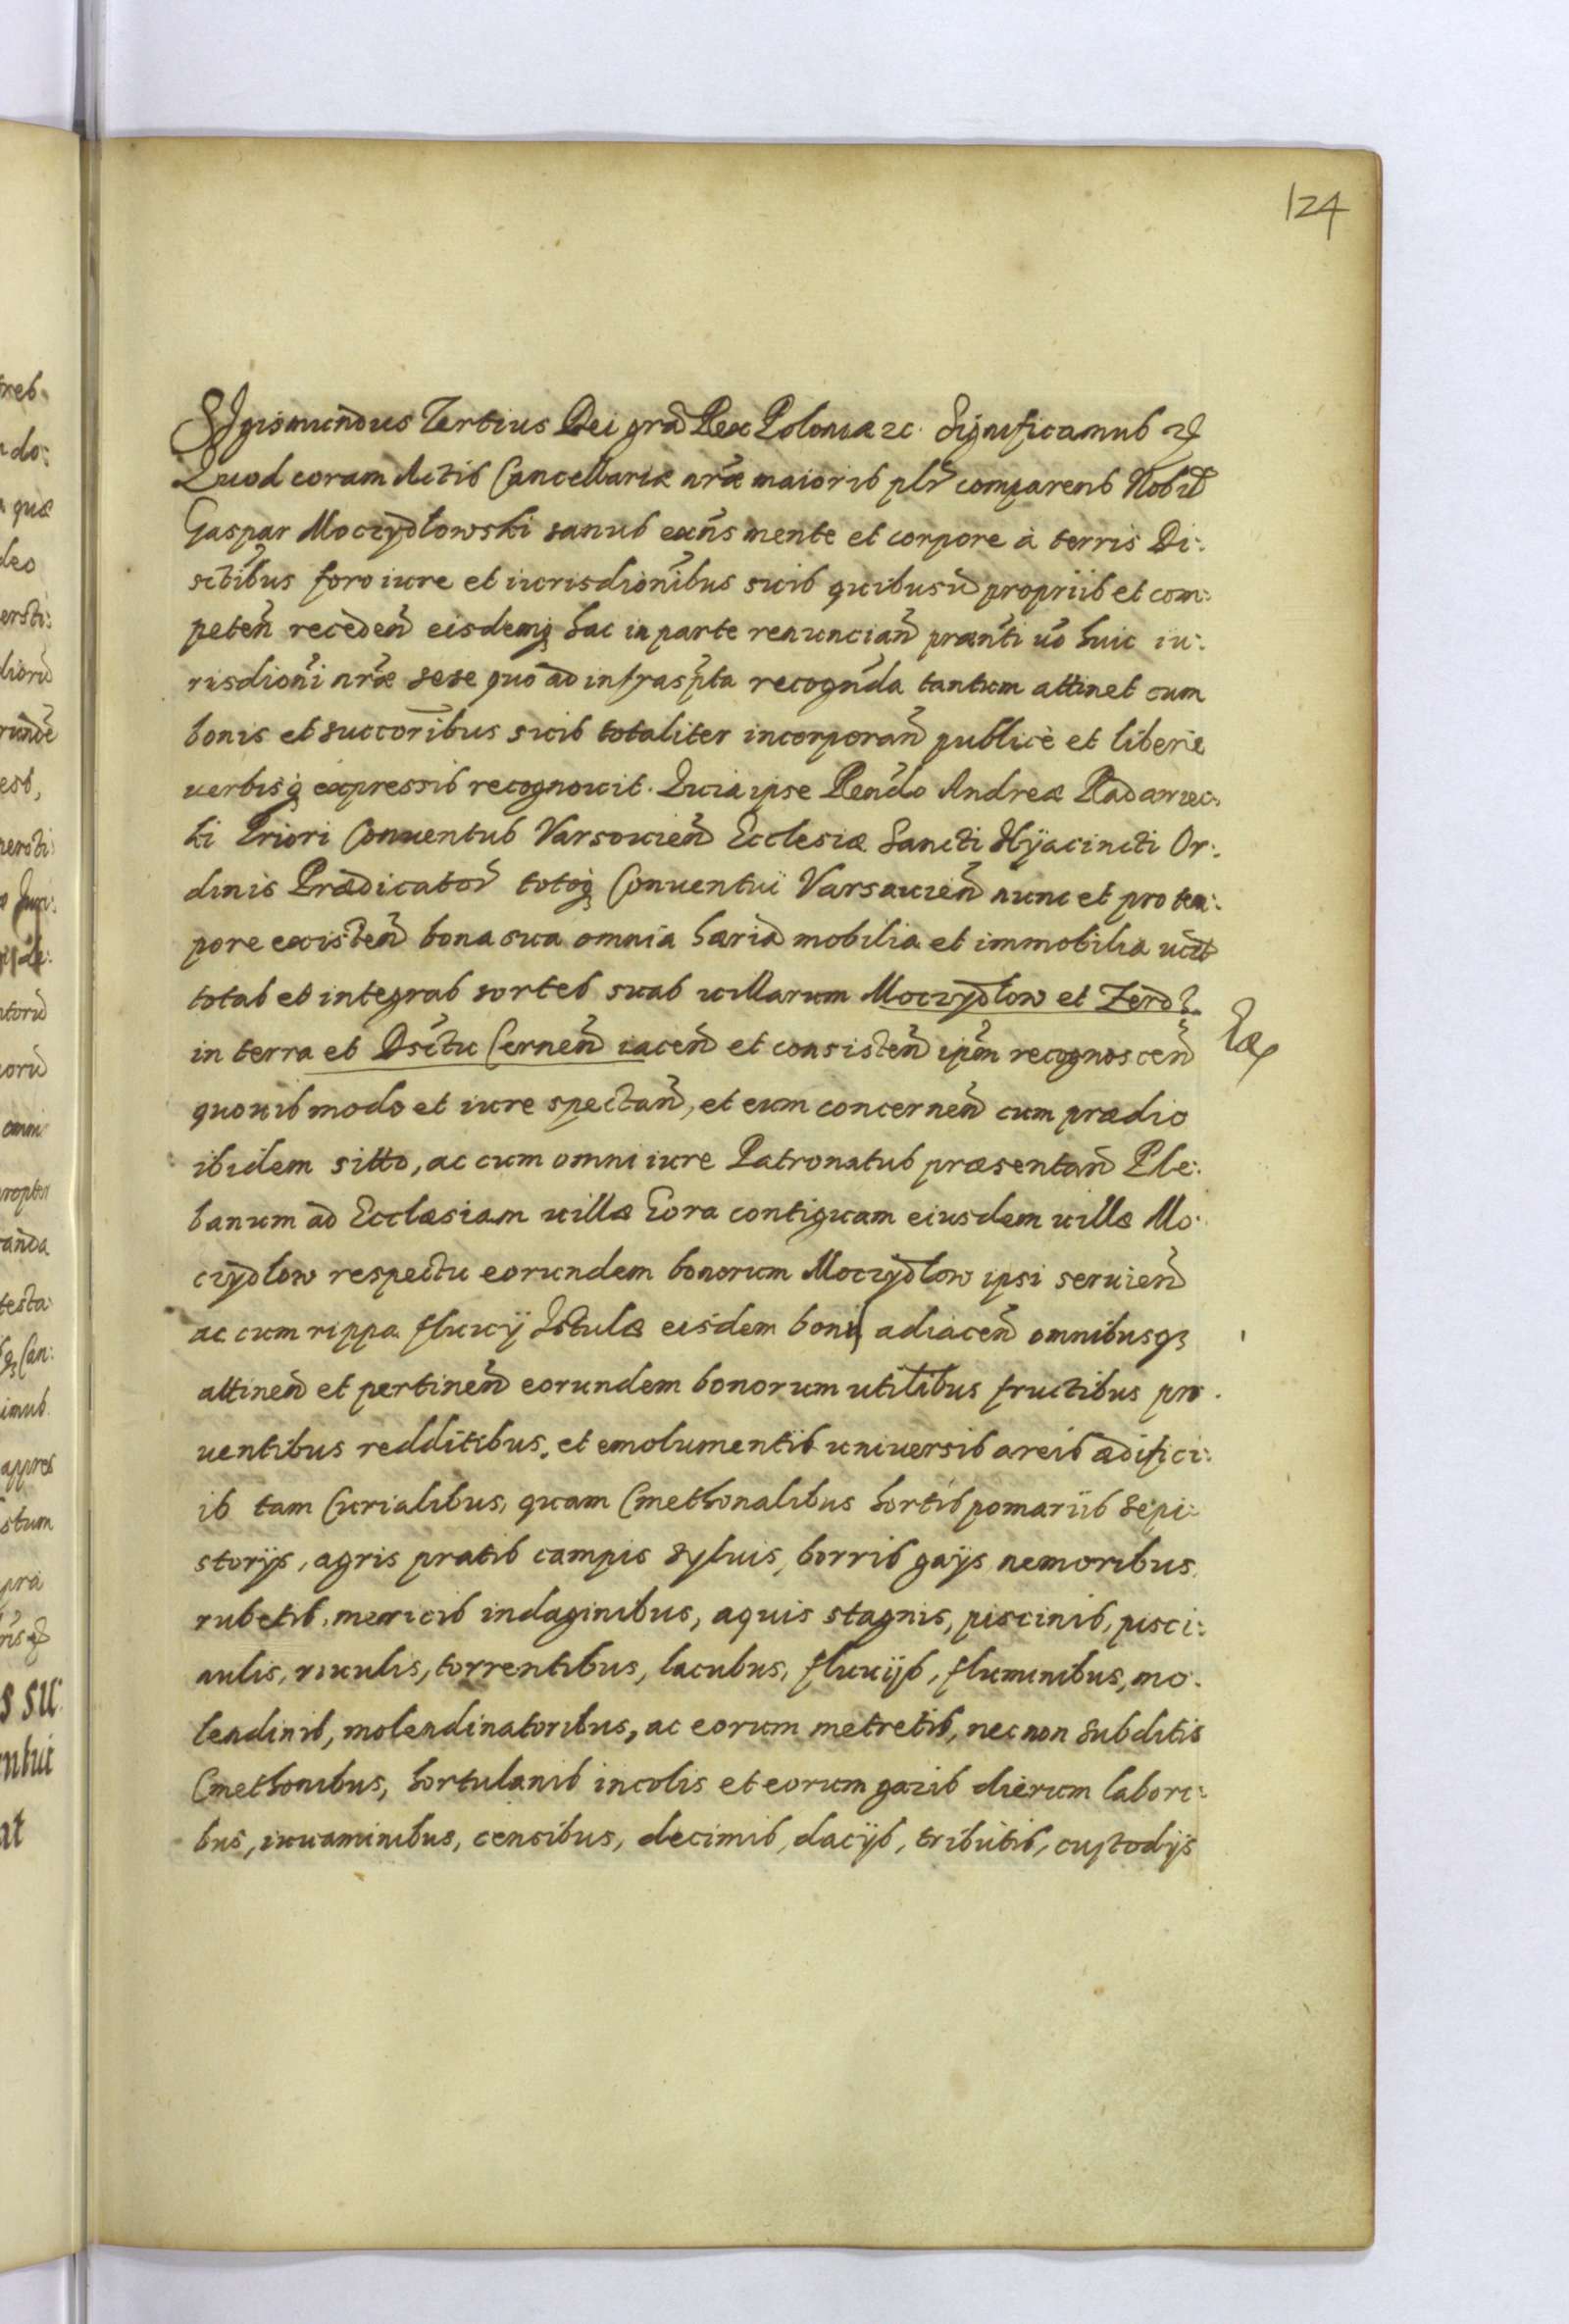 124
Sigismundus Tertius Dei grã Rex Poloniæ &c. Significamus &c
Quod coram Actis Cancellariæ nr̃æ maioris plr̃ comparens Nobil̃
Gaspar Moczydłowski sanus exñs mente et corpore à terris Di:
stc̃tibus foro iure et iurisdionĩbus suis quibusũ propriis et com:
peteñ recedeñ eisdemq hac in parte renunciañ præñti uõ huic iu:
risdioñi nr̃æ sese quo ad infrasp̃ta recognñda tantum attinet cum
bonis et successorĩbus suis totaliter incorporañ publicè et liberè
uerbisq expressis recognouit. Quia ipse Reñdo Andreæ Radawiec
ki Priori Conuentus Varsouieñ Ecclesiæ Sancti Hÿacincti Or:
dinis Prædicator̃ totiq Conuentui Varsauieñ nunc et pro tem:
pore existeñ bona sua omnia hæriã mobilia et immobilia uidt
totas et integras sortes suas uillarum Moczydłow et
in terra et Dsctu Cerneñ iaceñ et consisteñ ipm̃ recognosceñ
quouis modo et iure spectañ, et eum concerneñ cum prædio
ibidem sitto, ac cum omni iure Patronatus præsentañ Ple:
banum ad Ecclæsiam uillæ Gora contiguam eiusdem uillæ Mo:
czydłow respectu eorundem bonorum Moczydłow ipsi seruieñ
ac cum rippa fluuij Istulæ eisdem bonis adiaceñ omnibusq3
attineñ et pertineñ eorundem bonorum utilibus fructibus pro
uentibus redditibus, et emolumentis uniuersis areis ædifici:
is tam Curialibus, quam Cmethonalibus hortis pomariis sepi:
storijs, agris pratis campis syluis, borris gajis nemoribus,
rubetis, mericis indaginibus, aquis stagnis, piscinis, pisci:
nulis, riuulis, torrentibus, lacubus, fluuijs, fluminibus, mo:
lendinis, molendinatoribus, ac eorum metretis, nec non subditis
Cmethonibus, hortulanis incolis et eorum gazis dierum labori:
bus, iuuaminibus, censibus, decimis, dacijs, tributis, custodijs